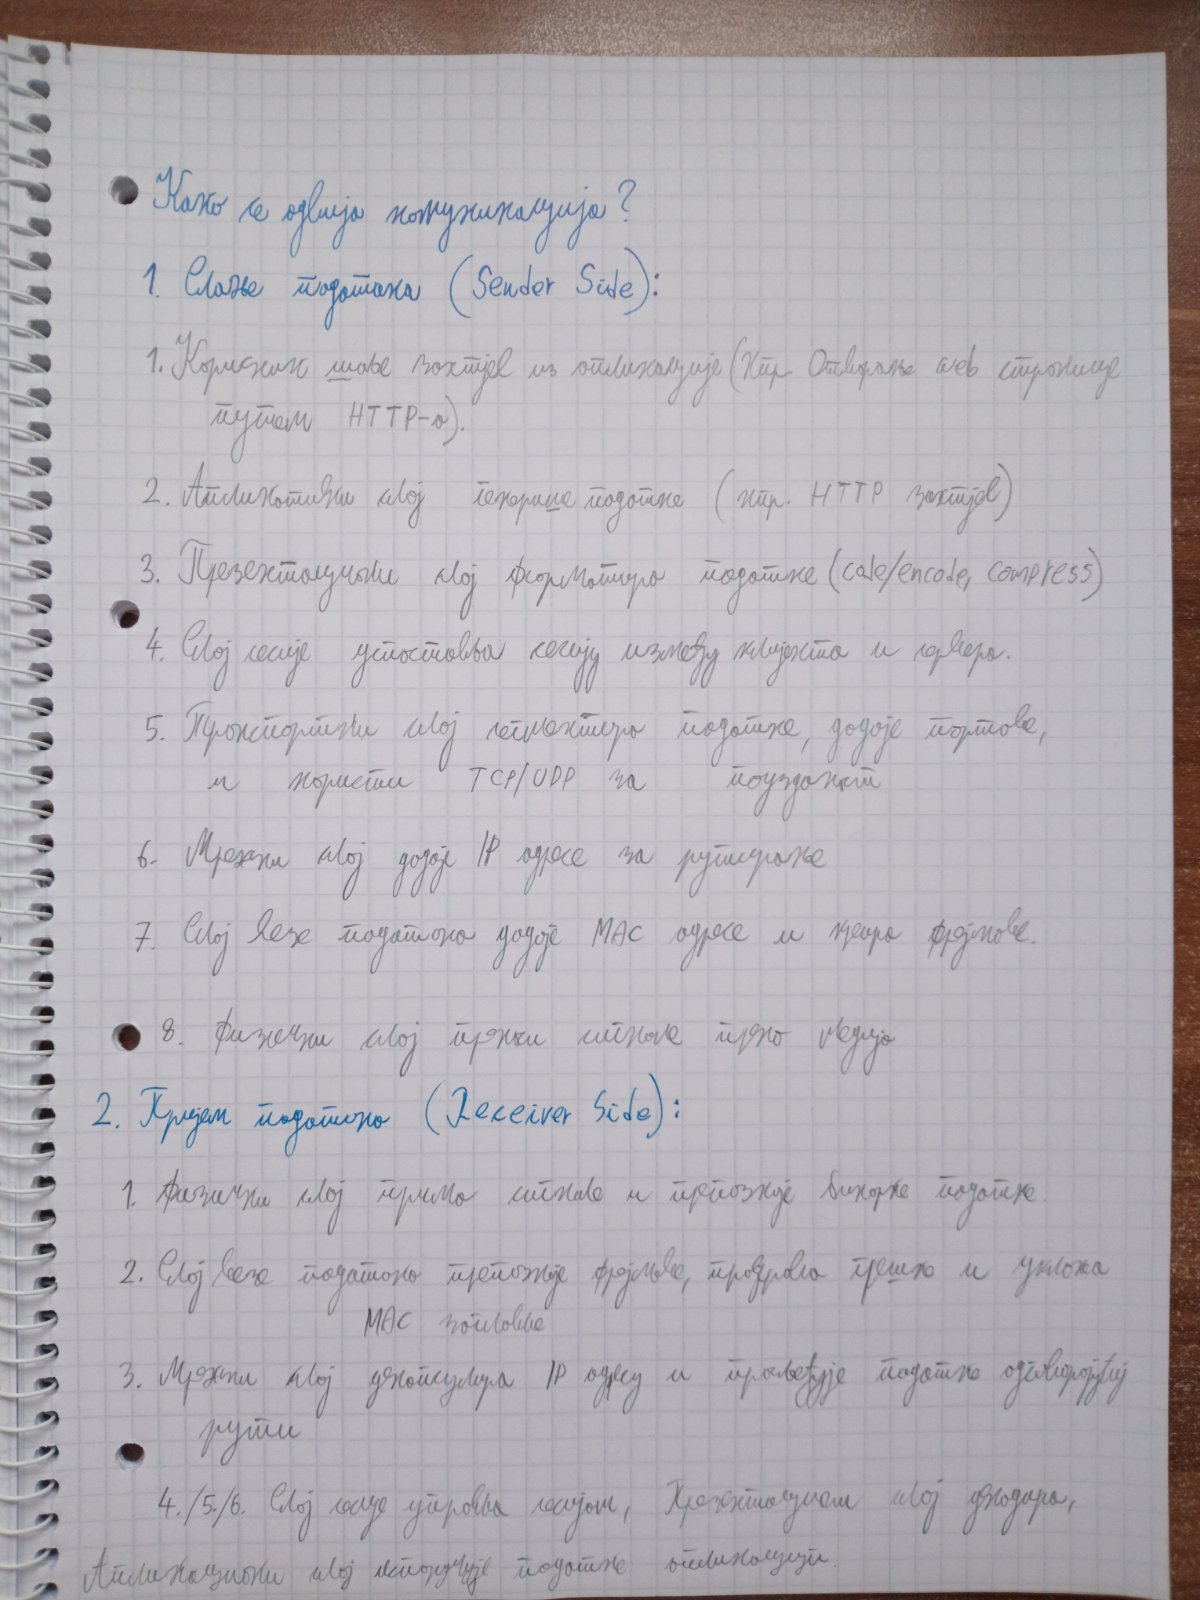 Како се одвија комуникација?
1. Слање података (Sender Side):
1. Корисник шаље захтјев из апликације (Нпр. Отварање web странице
путем HTTP-а).
2. Апликативни слој генерише податке (нпр. HTTP захтјев)
3. Презентациони слој форматира податке (code/encode, compress)
4. Слој сесије успоставља сесију између клијента и сервера.
5. Транспортни слој сегментира податке, додаје портове,
и користи TCP/UDP за
6. Мрежни слој додаје IP адресе за рутирање
7. Слој везе података додаје MAC адресе и креира фрејмове.
8. Физички слој преноси сигнале преко медија
2. Пријем података (Receiver Side):
1. Физички слој прима сигнале и препознаје бинарне податке.
2. Слој везе података препознаје фрејмове, провјерава грешке и уклања
MAC заглавље
3. Мрежни слој IP адресу и прослеђује податке одговарајућој
рути
4./5./6. Слој сесије управља сесијом, слој декодира,
Апликациони слој испоручује податке апликацији.